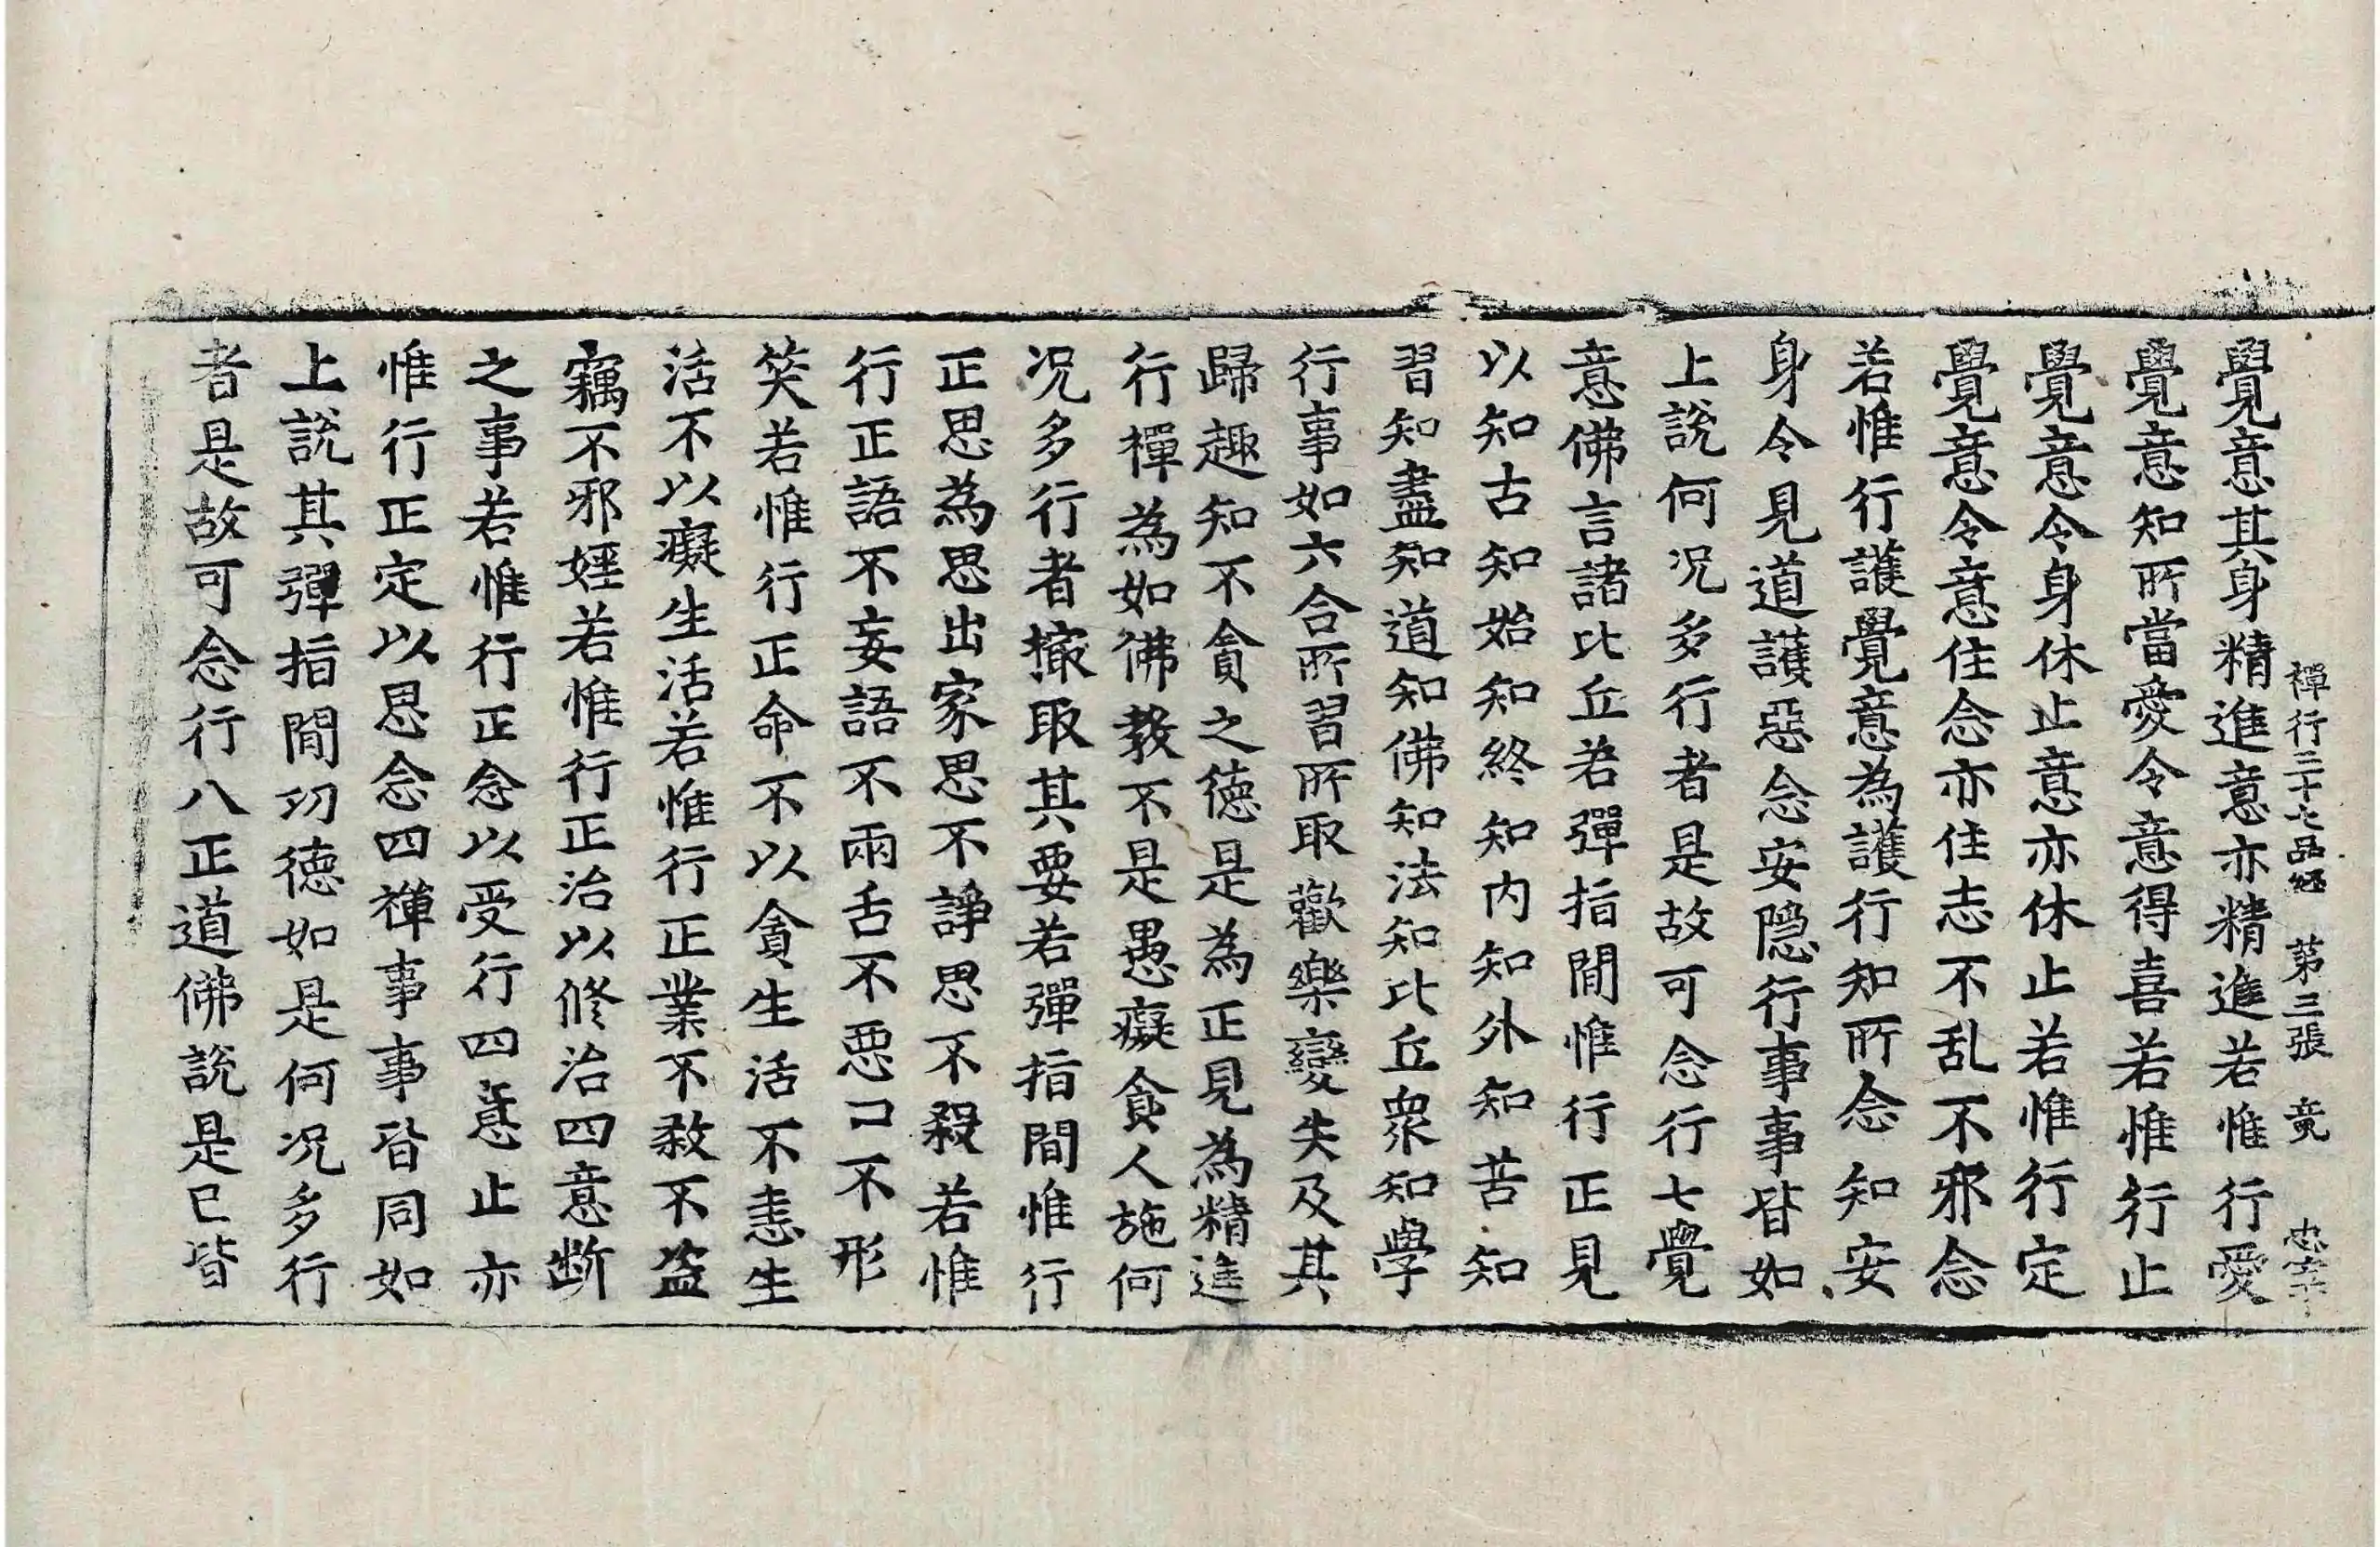 禪行三十七品經 第三張 竟
覺意其身精進意亦精進若惟行愛
覺意知所當愛令意得喜若惟行止
覺意令身休止意亦休止若惟行定
覺意令意住念亦住志不乱不邪念
若惟行護覺意為護行知所念知安
身令見道護惡念安隱行事事皆如
上說何況多行者是故可念行七覺
意佛言諸比丘若彈指間惟行正見
以知古知始知終知內知外知苦知
習知盡知道知佛知法知比丘眾知學
行事如六合所習所取歡樂變失及其
歸趣知不貪之德是為正見為精進
行禪為如佛教不是愚癡貪人施何
況多行者撮取其要若彈指間惟行
正思為思出家思不諍思不殺若惟
行正語不妄語不兩舌不惡口不形
笑若惟行正命不以貪生活不恚生
活不以癡生活若惟行正業不殺不盜
竊不邪婬若惟行正治以修治四意断
之事若惟行正念以受行四意止亦
惟行正定以思念四禪事事皆同如
上說其彈指間功德如是何況多行
者是故可念行八正道佛說是已皆